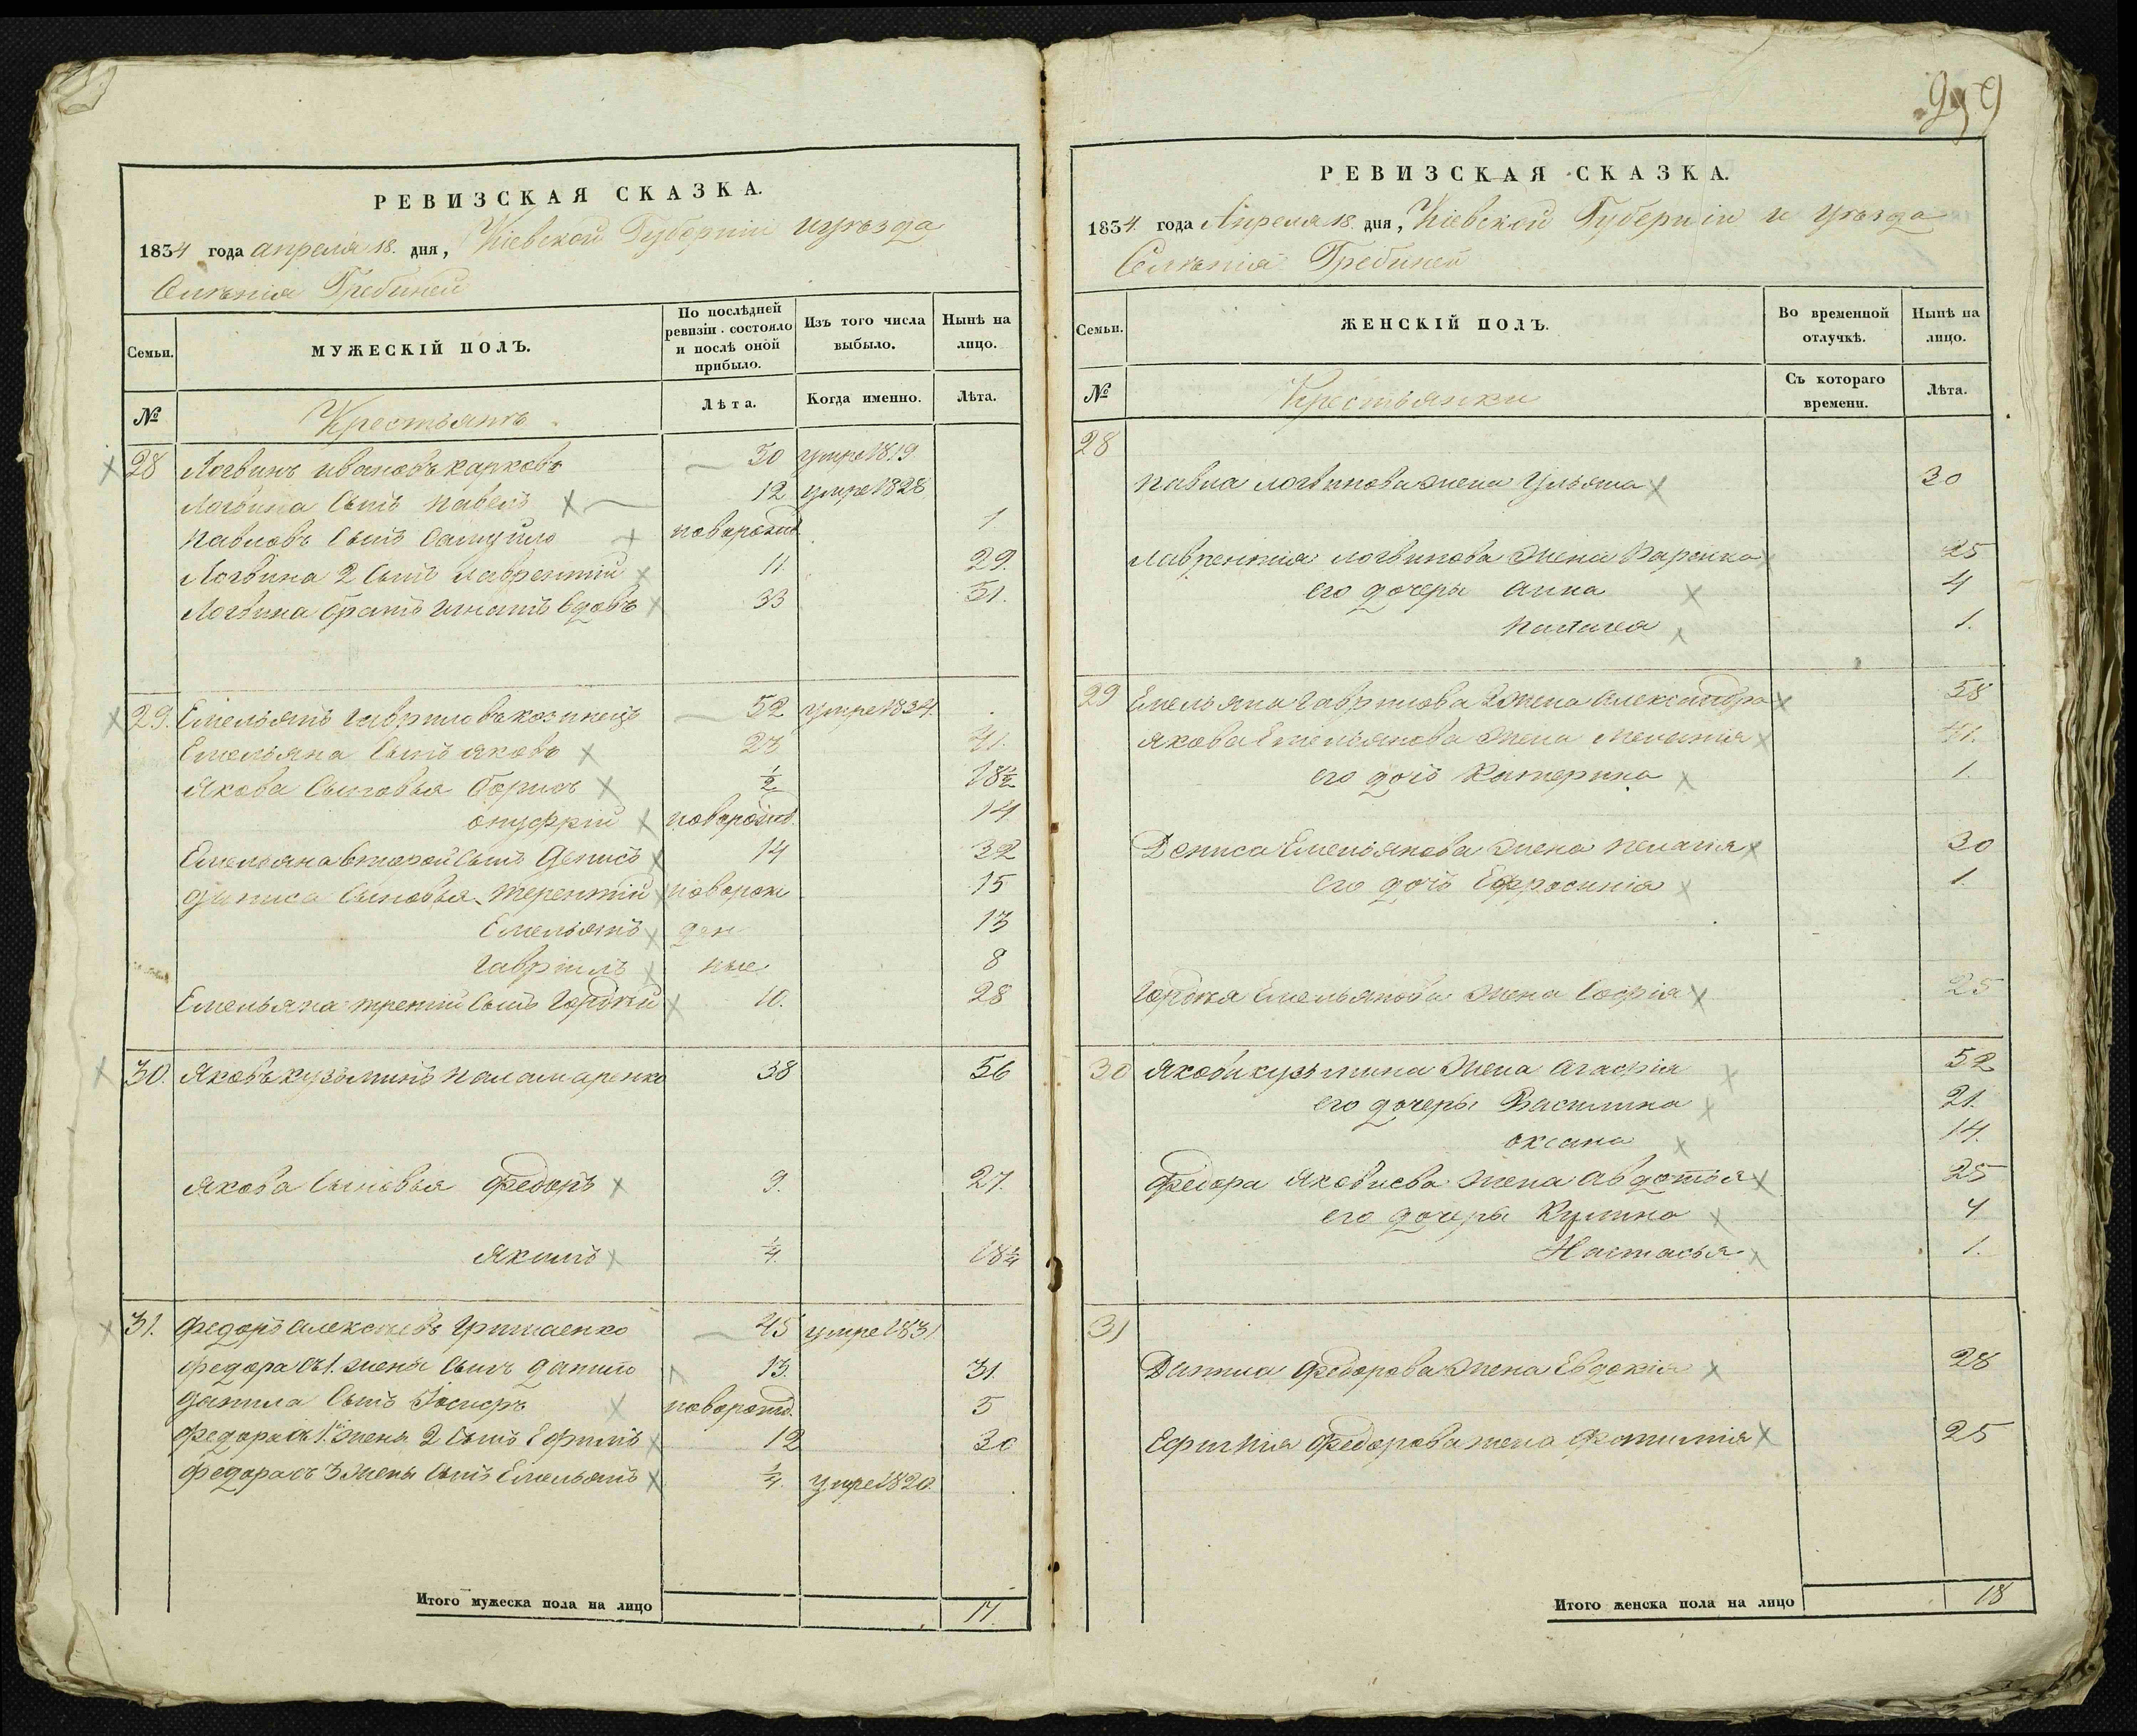 259
РЕВИЗСКАЯ СКАЗКА.
1834 года апреля 18. дня, Кіевской Губерніи и уѣзда
Селѣнія Гребиней
Семьи.
МУЖЕСКІЙ ПОЛЪ.
По послѣдней ревизіи состояло и послѣ оной прибыло.
Изъ того числа выбыло.
Нынѣ на лицо.
№
Крестьянѣ
Лѣта.
Когда именно.
Лѣта.
28 Логвинъ Ивановъ 30 умре 1819
Логвина Сынъ Павелъ 12 умре 1828
Павловъ Сынъ Самуйло новорожд. 1
Логвина 2 Сынъ Лаврентій 11. 29.
Логвина братъ Игнатъ вдовъ 33 51.
29. Емельянъ Гавриловъ 52 умре 1834.
Емельяна Сынъ Яковъ 23 41.
Якова Сыновья Борисъ ½ 18½
Онуфрій новорожд. 14
Емельяна второй Сынъ Денисъ 14 32
Дениса Сыновья Терентій новорож 15
Емельянъ ден 13
Гавріилъ ные 8
Емельяна третій Сынъ Гордѣй 10. 28
30. Яковъ Кузьминъ Паламаренко 38 56
Якова Сыновья Федоръ 9. 27.
Якимъ ¼. 18¼
31. Федоръ Алексѣевъ 45 умре 1831
Федора съ 1. жены Сынъ Данило 13. 31.
Данила Сынъ Іосифъ новорожд. 5
Федора съ 1й жены 2 Сынъ Ефимъ 12 30
Федора съ 3 жены Сынъ Емельянъ ¼. умре 1820.
Итого мужеска пола на лицо 17.
РЕВИЗСКАЯ СКАЗКА.
1834 года Апреля 18. дня, Кіевской Губерніи и уѣзда
Селѣнія Гребиней
Семьи.
ЖЕНСКІЙ ПОЛЪ.
Во временной отлучкѣ.
Нынѣ на лицо.
№
Крестьянки
Съ котораго времени.
Лѣта.
28
Павла Логвинова жена Ульяна 30
Лаврентія Логвинова жена 25
его дочеры Анна 4
1.
29 Емельяна Гаврилова 2 жена Александра 58
Якова Емельянова жена Меланія 41.
его дочь Катерина 1.
Дениса Емельянова жена Пелагія 30
его дочь Ефросинія 1.
Гордѣя Емельянова жена Софія 25
30 Якова Кузьмина жена Агафія 52
его дочеры Василина 21.
Оксана 14.
Федора Яковлева жена Авдотія 25
его дочеры Кулина 4
Настасья 1.
31
Данила Федорова жена Евдокія 28
Ефимія Федорова жена 25
Итого женска пола на лицо 18